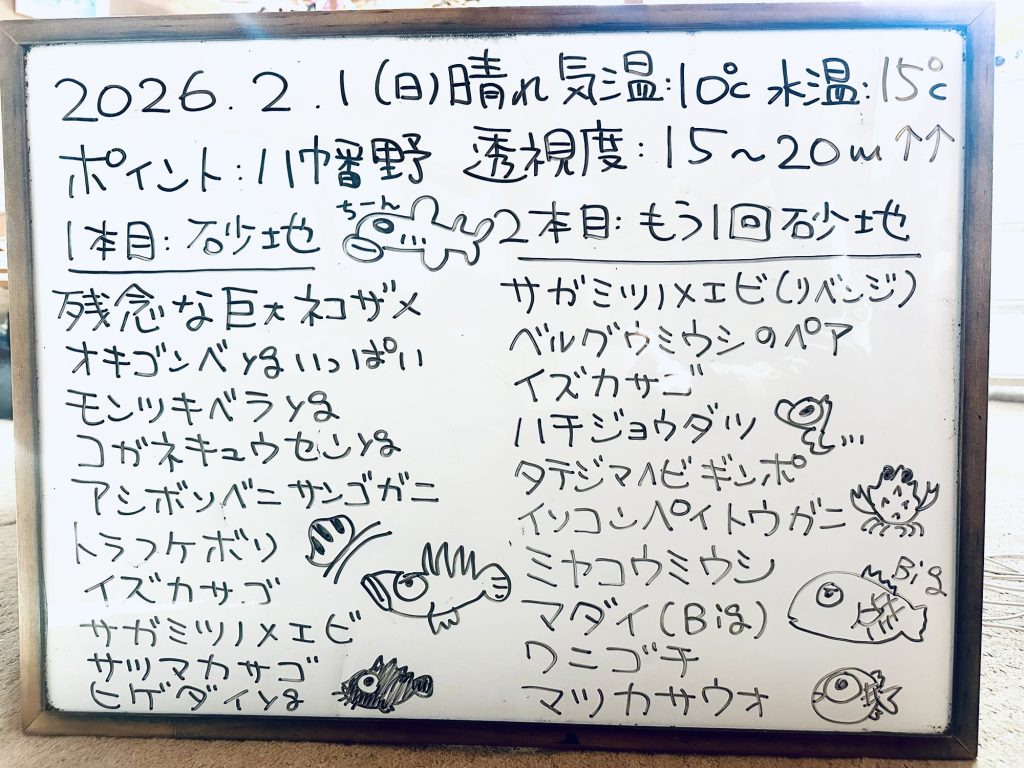 2026.2.1(日)晴れ 気温:10℃ 水温:15℃
ポイント:八幡野 透視度:15~20m↑↑
1本目:砂地
ちーん
残念な巨大ネコザメ
オキゴンベygいっぱい
モンツキベラyg
コガネキュウセンyg
アシボソベニサンゴガニ
トラフケボリ
イズカサゴ
サガミツノメエビ
サツマカサゴ
ヒゲダイyg
2本目:もう1回砂地
サガミツノメエビ(リベンジ)
ベルグウミウシのペア
イズカサゴ
ハチジョウダツ
タテジマヘビギンポ
イソコンペイトウガニ
ミヤコウミウシ
マダイ(Big)
Big
ワニゴチ
マツカサウオ